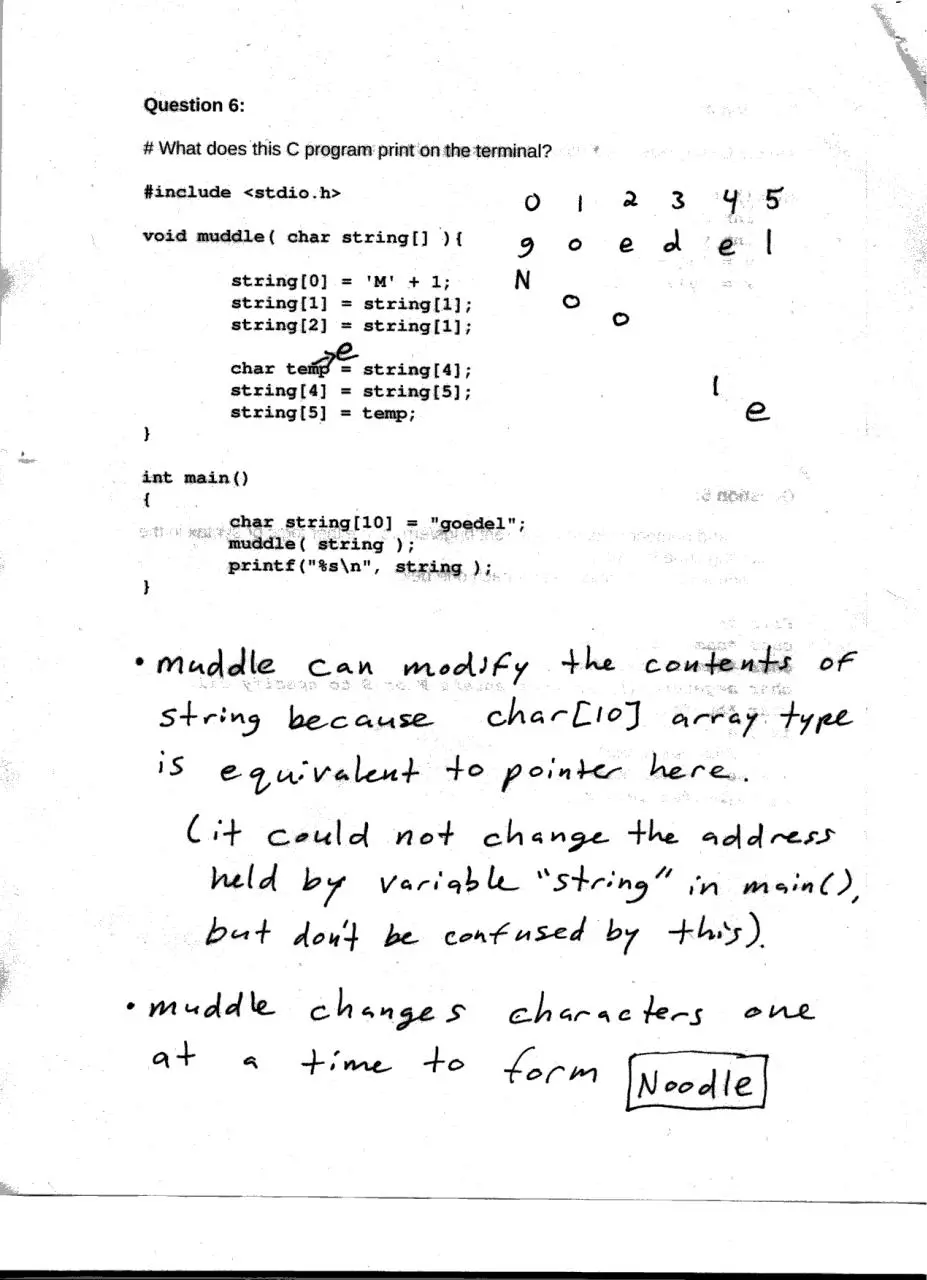 Question 6:
# What does this C program print on the terminal?
#include <stdio.h>
0 1 2 3 4 5
void muddle( char string[] ){
g o e d e l
string[0] = 'M' + 1;
N
string[1] = string[1];
o
string[2] = string[1];
o
e
char temp = string[4];
string[4] = string[5];
l
string[5] = temp;
e
}
int main()
{
char string[10] = "goedel";
muddle( string );
printf("%s\n", string );
}
• muddle can modify the contents of
string because char[10] array type
is equivalent to pointer here.
(it could not change the address
held by variable "string" in main(),
but don't be confused by this).
• muddle changes characters one
at a time to form Noodle